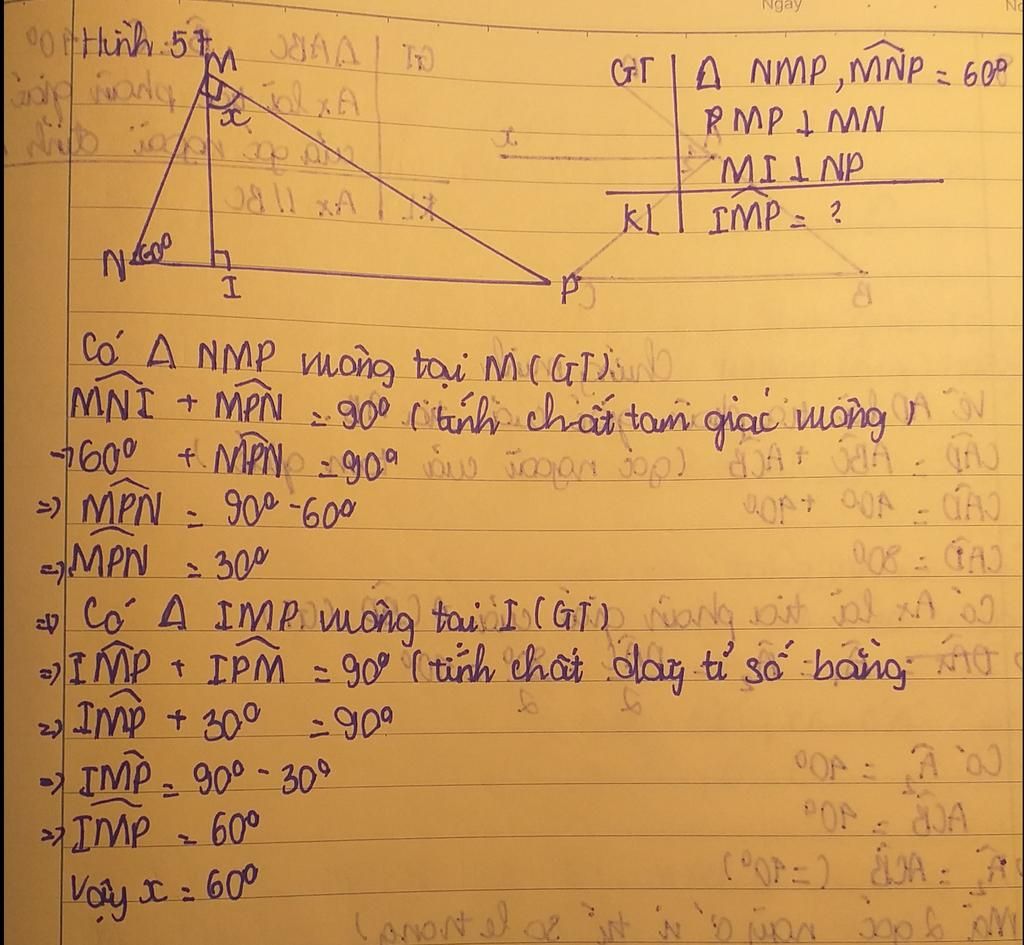 Hình 57
M
x
N
60°
I
P
GT | Δ NMP, MNP = 60°
MP ⊥ MN
MI ⊥ NP
KL | IMP = ?
Có Δ NMP vuông tại M (GT)
MNI + MPN = 90° (tính chất tam giác vuông)
→ 60° + MPN = 90°
=> MPN = 90° - 60°
=> MPN = 30°
=> Có Δ IMP vuông tại I (GT)
=> IMP + IPM = 90° (tính chất dãy tỉ số bằng
=> IMP + 30° = 90°
=> IMP = 90° - 30°
=> IMP = 60°
Vậy x = 60°